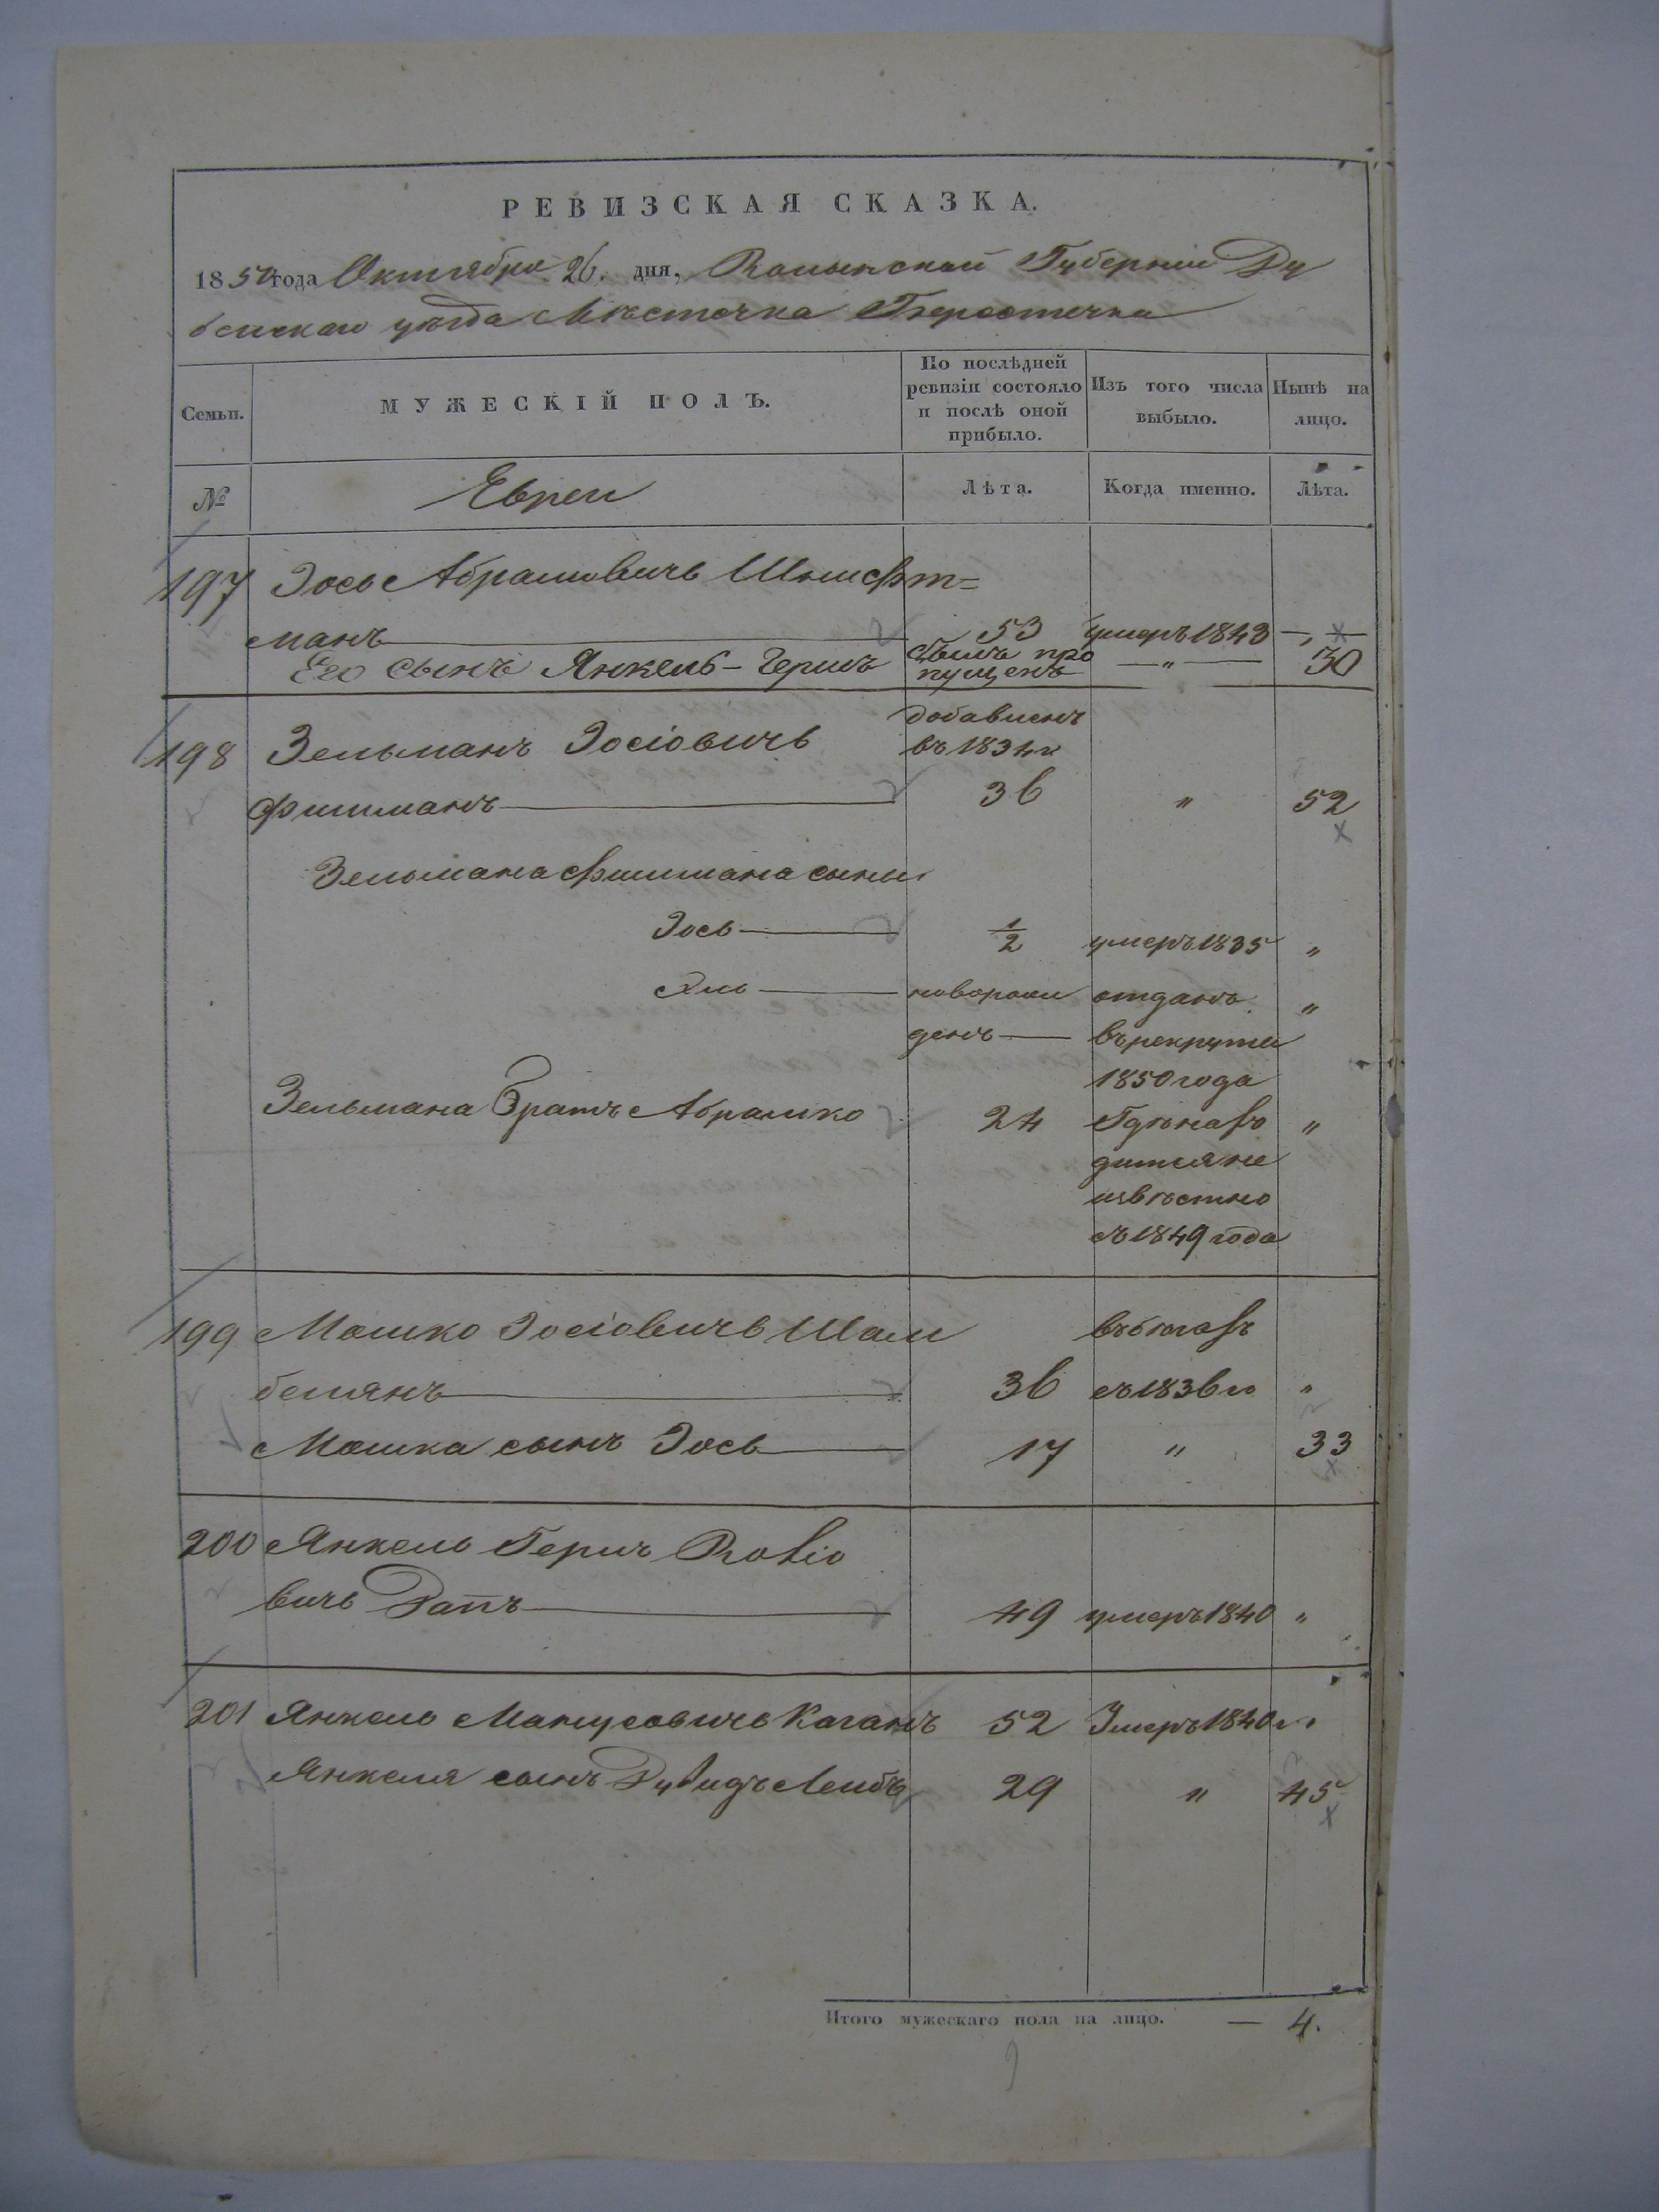 РЕВИЗСКАЯ СКАЗКА.
1850 года Октября 26. дня, Волынской Губернии Ду
бенскаго уѣзда Мѣстечка Берестечка
Семьи.
МУЖЕСКІЙ ПОЛЪ.
По послѣдней ревизіи состояло и послѣ оной прибыло.
Изъ того числа выбыло.
Нынѣ на лицо.
№
Евреи
Лѣта.
Когда именно.
Лѣта.
197 Іось Абрамовичъ
манъ 53 умеръ 1843 —
Его сынъ Янкель-Гершъ былъ про пущенъ — " — 30
198 Зельманъ Іосіовичъ добавленъ въ 1834 г
Фишманъ 36 " 52
Зельмана Фишмана сыны
Іось 1/2 умеръ 1835 "
новорож отданъ "
денъ въ рекруты
1850 года
Зельмана братъ Абрамко 24 Гдѣ нахо "
дится не
извѣстно
съ 1849 года
199 Мошко Іосіовичъ Шам въ бѣгахъ
36 съ 1836 го "
Мошка сынъ Іось 17 " 33
200 Янкель Гершъ
вичъ Рапъ 49 умеръ 1840 "
201 Янкель Манусовичъ Каганъ 52 Умеръ 1840 "
Янкеля сынъ Дувидъ Лейбъ 29 " 45
Итого мужескаго пола на лицо. — 4.